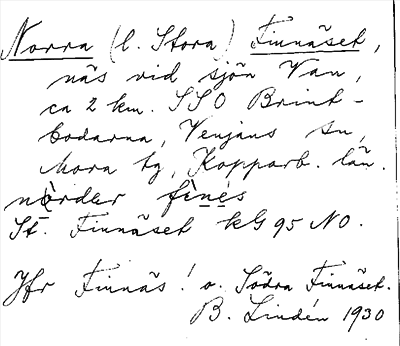 Norra (l. Stora) Finnäset,
näs vid sjön Van,
ca 2 km. SSO Brint-
bodarna, Venjans sn,
Mora tg, Kopparb. län.
nòrder fìnés
St. Finnäset kG 95 NO.
Jfr Finnäs! o. Södra Finnäset.
B. Lindén 1930